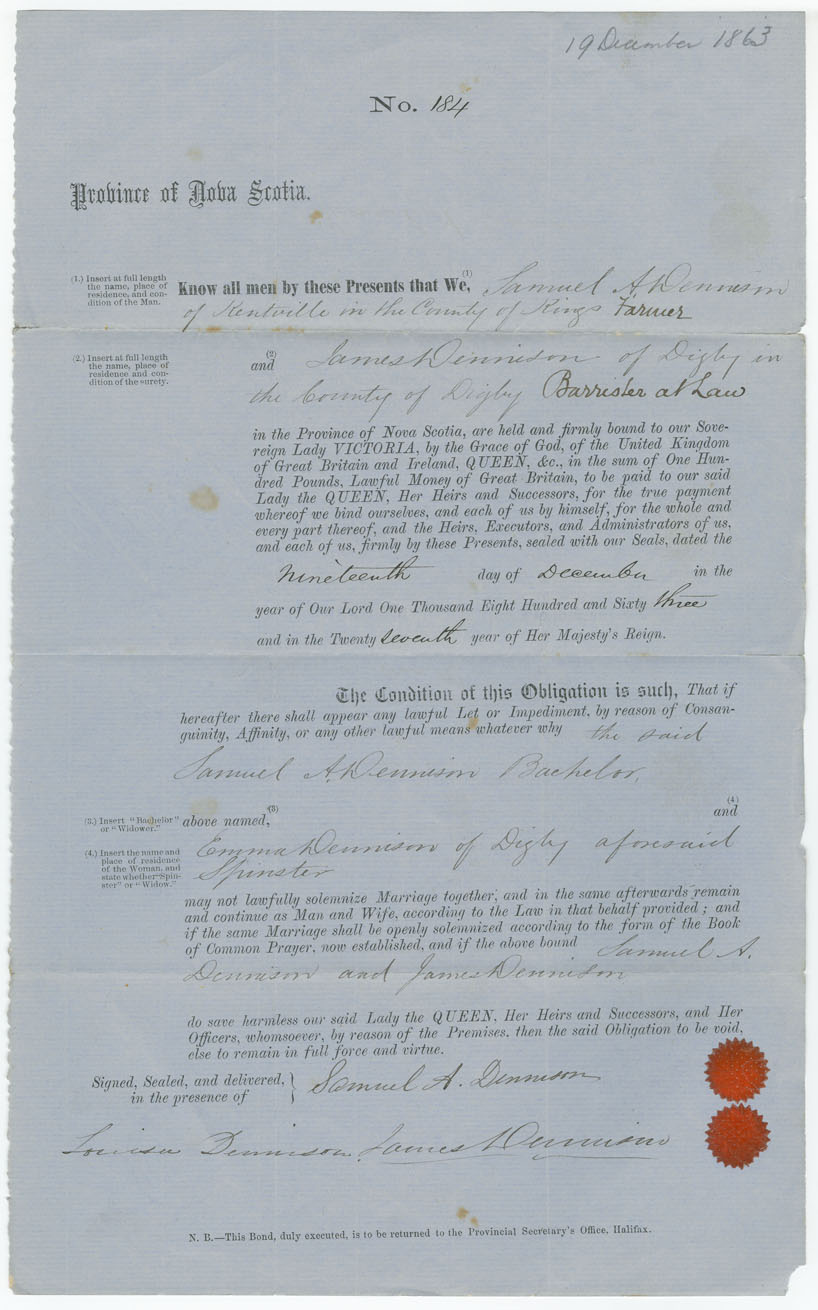 19 December 1863
No. 184
Province of Nova Scotia.
(1.) Insert at full length
the name, place of
residence, and con-
dition of the Man.
Know all men by these Presents that We, (1) Samuel A. Dennison
of Kentville in the County of Kings Farmer
(2.) Insert at full length
the name, place of
residence and con-
dition of the surety.
and (2) James Dennison of Digby in
the County of Digby Barrister at Law
in the Province of Nova Scotia, are held and firmly bound to our Sove-
reign Lady VICTORIA, by the Grace of God, of the United Kingdom
of Great Britain and Ireland, QUEEN, &c., in the sum of One Hun-
dred Pounds, Lawful Money of Great Britain, to be paid to our said
Lady the QUEEN, Her Heirs and Successors, for the true payment
whereof we bind ourselves, and each of us by himself, for the whole and
every part thereof, and the Heirs, Executors, and Administrators of us,
and each of us, firmly by these Presents, sealed with our Seals, dated the
Nineteenth day of December in the
year of Our Lord One Thousand Eight Hundred and Sixty three
and in the Twenty seventh year of Her Majesty's Reign.
The Condition of this Obligation is such, That if
hereafter there shall appear any lawful Let or Impediment, by reason of Consan-
guinity, Affinity, or any other lawful means whatever why the said
Samuel A. Dennison Bachelor,
(3.) Insert "Bachelor"
or "Widower."
above named, (3) and (4)
(4.) Insert the name and
place of residence
of the Woman, and
state whether "Spin-
ster" or "Widow."
Emma Dennison of Digby aforesaid
Spinster
may not lawfully solemnize Marriage together, and in the same afterwards remain
and continue as Man and Wife, according to the Law in that behalf provided ; and
if the same Marriage shall be openly solemnized according to the form of the Book
of Common Prayer, now established, and if the above bound Samuel A.
Dennison and James Dennison
do save harmless our said Lady the QUEEN, Her Heirs and Successors, and Her
Officers, whomsoever, by reason of the Premises, then the said Obligation to be void,
else to remain in full force and virtue.
Signed, Sealed, and delivered,
in the presence of
Samuel A. Dennison
Louisa Dennison James Dennison
N. B.—This Bond, duly executed, is to be returned to the Provincial Secretary's Office, Halifax.